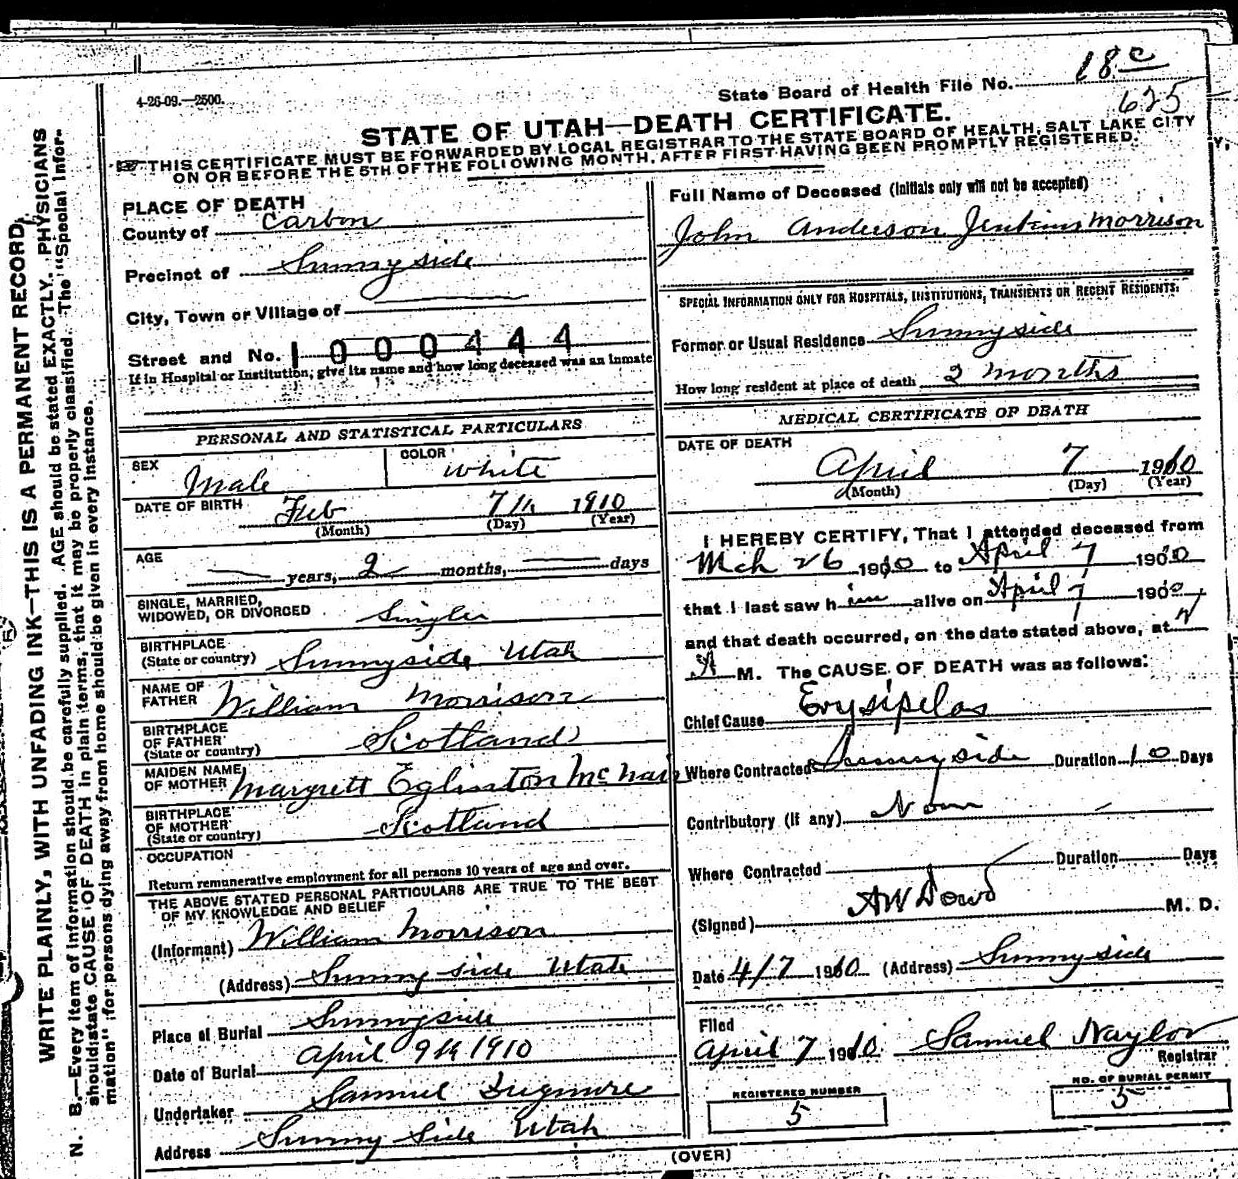 18 c
4-26-09.—2500.
State Board of Health File No.
625
STATE OF UTAH—DEATH CERTIFICATE.
THIS CERTIFICATE MUST BE FORWARDED BY LOCAL REGISTRAR TO THE STATE BOARD OF HEALTH, SALT LAKE CITY
ON OR BEFORE THE 5TH OF THE FOLLOWING MONTH, AFTER FIRST HAVING BEEN PROMPTLY REGISTERED.
WRITE PLAINLY, WITH UNFADING INK—THIS IS A PERMANENT RECORD.
N. B.—Every item of information should be carefully supplied. AGE should be stated EXACTLY. PHYSICIANS
should state CAUSE OF DEATH in plain terms, that it may be properly classified. The "Special Infor-
mation" for persons dying away from home should be given in every instance.
PLACE OF DEATH
County of Carbon
Precinct of Sunnyside
City, Town or Village of
Street and No. 1 0 0 0 4 4 4
If in Hospital or Institution, give its name and how long deceased was an Inmate
PERSONAL AND STATISTICAL PARTICULARS
SEX Male COLOR White
DATE OF BIRTH Feb 7th 1910
(Month) (Day) (Year)
AGE years, 2 months, days
SINGLE, MARRIED,
WIDOWED, OR DIVORCED Single
BIRTHPLACE
(State or country) Sunnyside Utah
NAME OF
FATHER William Morrison
BIRTHPLACE
OF FATHER
(State or country) Scotland
MAIDEN NAME
OF MOTHER Margrett Eglinton McNair
BIRTHPLACE
OF MOTHER
(State or country) Scotland
OCCUPATION
Return remunerative employment for all persons 10 years of age and over.
THE ABOVE STATED PERSONAL PARTICULARS ARE TRUE TO THE BEST
OF MY KNOWLEDGE AND BELIEF
(Informant) William Morrison
(Address) Sunny side Utah
Place of Burial Sunnyside
Date of Burial April 9th 1910
Undertaker Samuel
Address Sunny Side Utah
Full Name of Deceased (Initials only will not be accepted)
John Anderson Jenkins Morrison
SPECIAL INFORMATION ONLY FOR HOSPITALS, INSTITUTIONS, TRANSIENTS OR RECENT RESIDENTS.
Former or Usual Residence Sunnyside
How long resident at place of death 2 months
MEDICAL CERTIFICATE OF DEATH
DATE OF DEATH
April 7 1910
(Month) (Day) (Year)
I HEREBY CERTIFY, That I attended deceased from
Mch 26 1910 to April 7 1910
that I last saw him alive on April 7 1910
and that death occurred, on the date stated above, at
A M. The CAUSE OF DEATH was as follows:
Chief Cause Erysipelas
Where Contracted Sunnyside Duration 10 Days
Contributory (if any) None
Where Contracted Duration Days
(Signed) AW Dowd M. D.
Date 4/7 1910 (Address) Sunnyside
Filed
April 7 1910 Samuel Naylor
Registrar
REGISTERED NUMBER
5
NO. OF BURIAL PERMIT
5
(OVER)